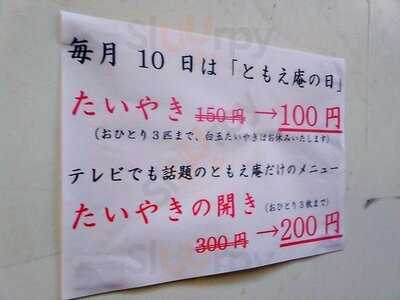 毎月 10 日は「ともえ庵の日」
たいやき 150円 →100円
（おひとり３匹まで、白玉たいやきはお休みいたします）
テレビでも話題のともえ庵だけのメニュー
たいやきの開き（おひとり３枚まで）
300円 →200円